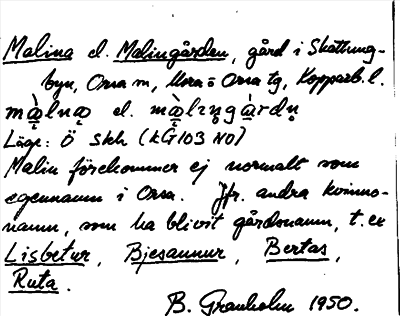 Malina el. Malingården, gård i Skattung-
byn, Orsa sn, Mora o Orsa tg, Kopparb. l.
el.
Läge: Ö Skh (KG 103 NO)
Malin förekommer ej normalt som
egennamn i Orsa. Jfr. andra kvinno-
namn, som ha blivit gårdsnamn, t. ex
Lisbetur, Bjesaunur, Bertas,
Ruta.
B. Granholm 1950.